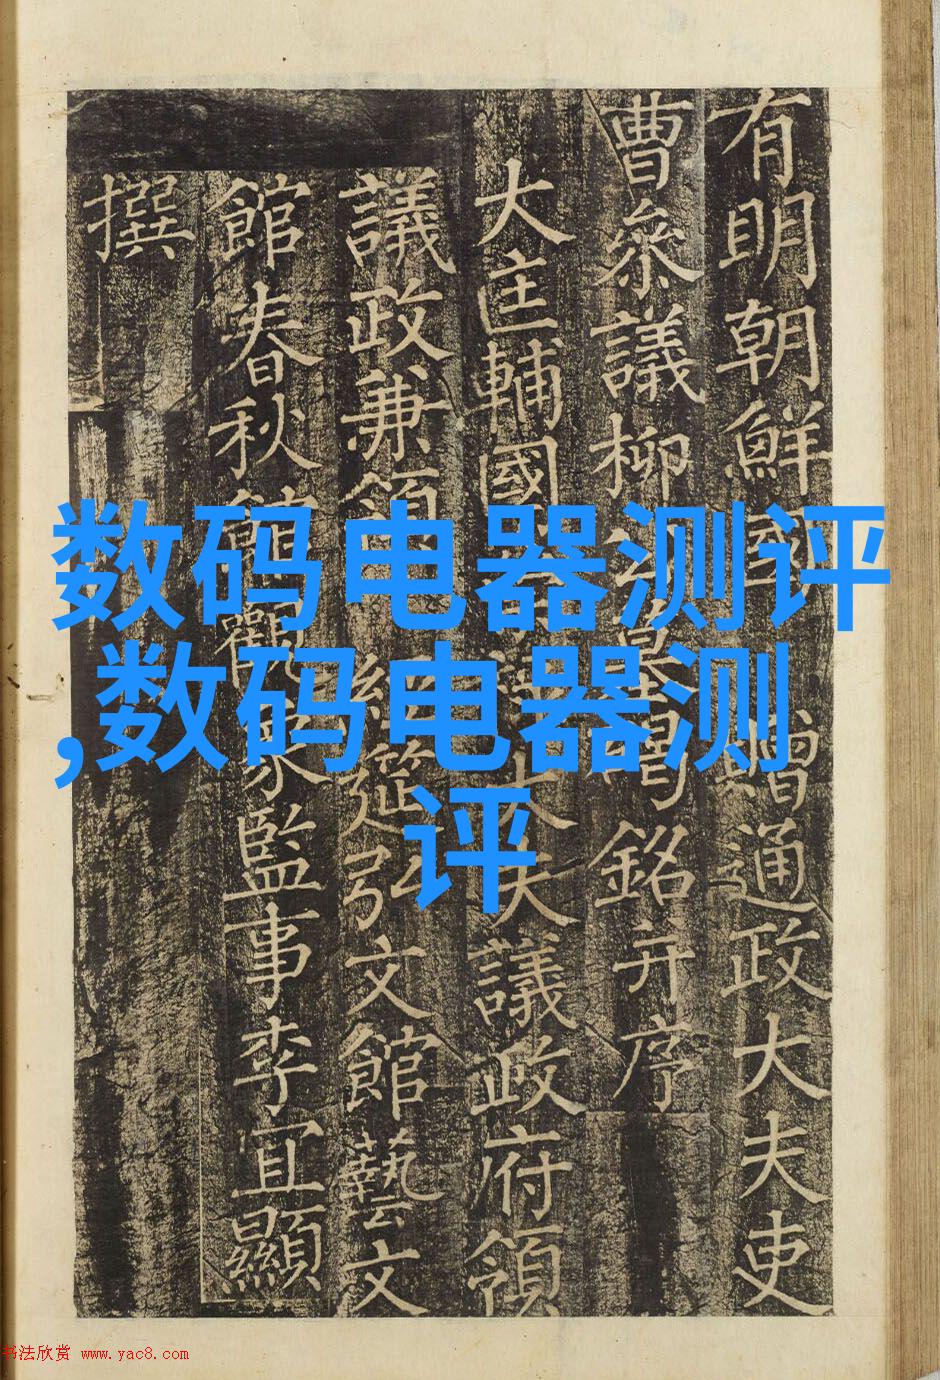 有明朝鮮國 贈通政大夫吏
曹叅議柳公墓碣銘并序
大匡輔國大夫議政府領
議政兼領 經筵弘文館藝文
館春秋館觀象監事李宜顯
撰
数码电器测评
,数码电器测
评
书法欣赏 www.yac8.com